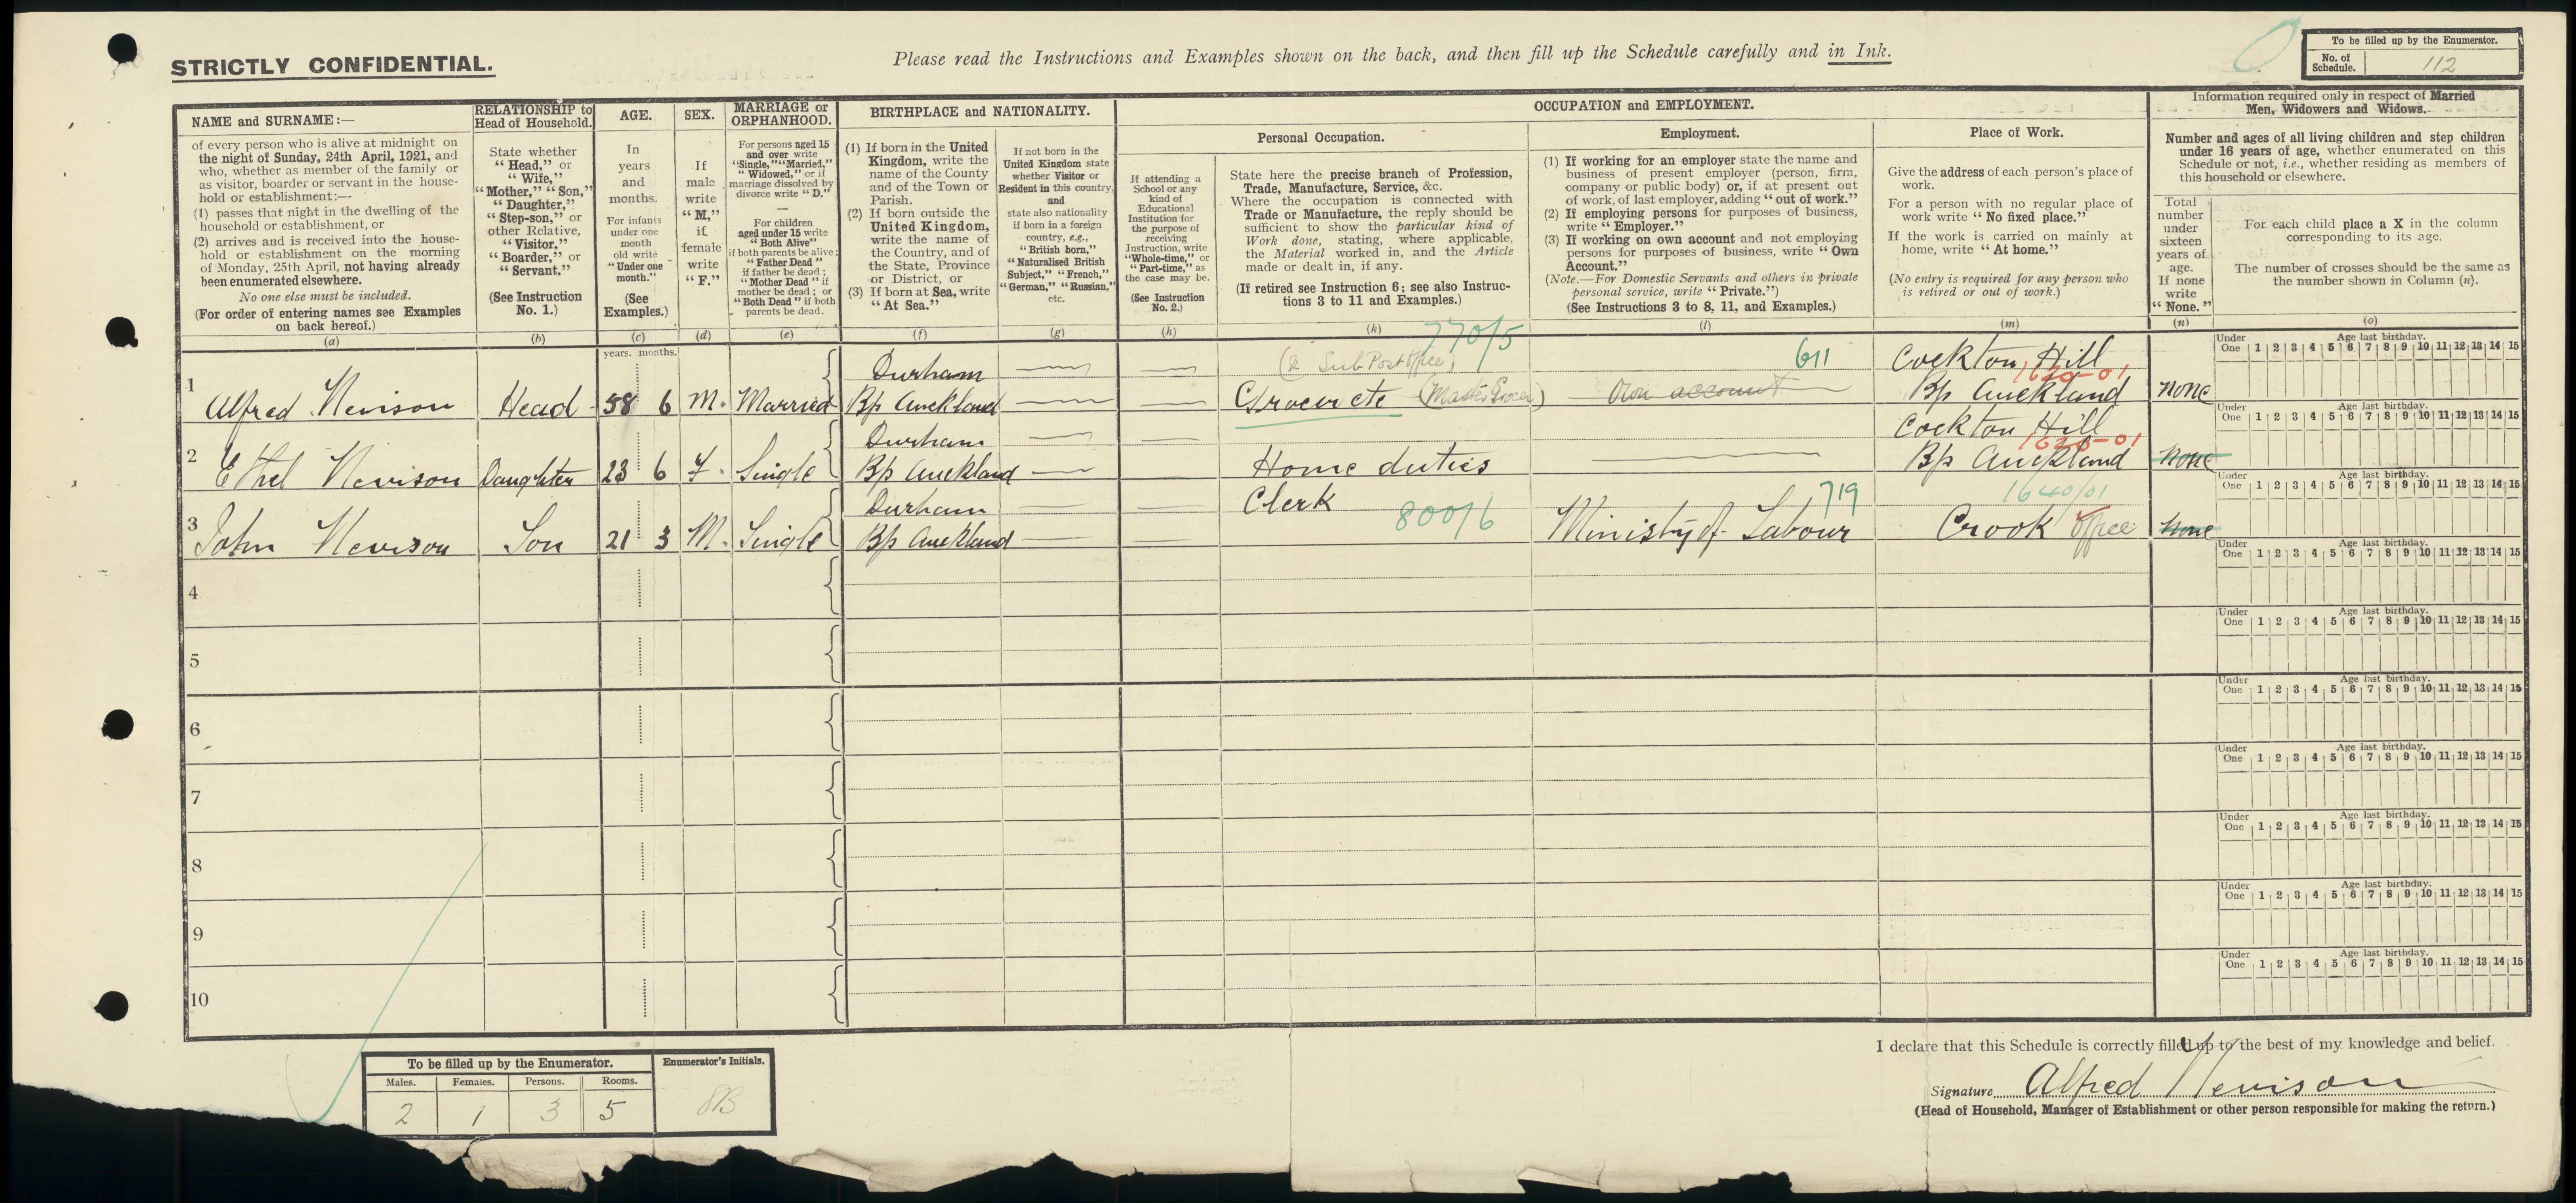 STRICTLY CONFIDENTIAL.
Please read the Instructions and Examples shown on the back, and then fill up the Schedule carefully and in Ink.
To be filled up by the Enumerator.
No. of Schedule. 112
NAME and SURNAME:—
of every person who is alive at midnight on
the night of Sunday, 24th April, 1921, and
who, whether as member of the family or
as visitor, boarder or servant in the house-
hold or establishment:—
(1) passes that night in the dwelling of the
household or establishment, or
(2) arrives and is received into the house-
hold or establishment on the morning
of Monday, 25th April, not having already
been enumerated elsewhere.
No one else must be included.
(For order of entering names see Examples
on back hereof.)
(a)
RELATIONSHIP to
Head of Household.
State whether
"Head," or
"Wife,"
"Mother," "Son,"
"Daughter,"
"Step-son," or
other Relative,
"Visitor,"
"Boarder," or
"Servant."
(See Instruction
No. 1.)
(b)
AGE.
In
years
and
months.
For infants
under one
month
old write
"Under one
month."
(See
Examples.)
(c)
SEX.
If
male
write
"M,"
if
female
write
"F."
(d)
MARRIAGE or
ORPHANHOOD.
For persons aged 15
and over write
"Single," "Married,"
"Widowed," or if
marriage dissolved by
divorce write "D."
—
For children
aged under 15 write
"Both Alive"
if both parents be alive;
"Father Dead"
if father be dead;
"Mother Dead" if
mother be dead; or
"Both Dead" if both
parents be dead.
(e)
BIRTHPLACE and NATIONALITY.
(1) If born in the United
Kingdom, write the
name of the County
and of the Town or
Parish.
(2) If born outside the
United Kingdom,
write the name of
the Country, and of
the State, Province
or District, or
(3) If born at Sea, write
"At Sea."
(f)
If not born in the
United Kingdom state
whether Visitor or
Resident in this country,
and
state also nationality
if born in a foreign
country, e.g.,
"British born,"
"Naturalised British
Subject," "French,"
"German," "Russian,"
etc.
(g)
OCCUPATION and EMPLOYMENT.
If attending a
School or any
kind of
Educational
Institution for
the purpose of
receiving
Instruction, write
"Whole-time," or
"Part-time," as
the case may be.
(See Instruction
No. 2.)
(h)
Personal Occupation.
State here the precise branch of Profession,
Trade, Manufacture, Service, &c.
Where the occupation is connected with
Trade or Manufacture, the reply should be
sufficient to show the particular kind of
Work done, stating, where applicable,
the Material worked in, and the Article
made or dealt in, if any.
(If retired see Instruction 6; see also Instruc-
tions 3 to 11 and Examples.)
(k)
Employment.
(1) If working for an employer state the name and
business of present employer (person, firm,
company or public body) or, if at present out
of work, of last employer, adding "out of work."
(2) If employing persons for purposes of business,
write "Employer."
(3) If working on own account and not employing
persons for purposes of business, write "Own
Account."
(Note.—For Domestic Servants and others in private
personal service, write "Private.")
(See Instructions 3 to 8, 11, and Examples.)
(l)
Place of Work.
Give the address of each person's place of
work.
For a person with no regular place of
work write "No fixed place."
If the work is carried on mainly at
home, write "At home."
(No entry is required for any person who
is retired or out of work.)
(m)
Information required only in respect of Married
Men, Widowers and Widows.
Number and ages of all living children and step children
under 16 years of age, whether enumerated on this
Schedule or not, i.e., whether residing as members of
this household or elsewhere.
Total
number
under
sixteen
years of
age.
If none
write
"None."
(n)
For each child place a X in the column
corresponding to its age.
The number of crosses should be the same as
the number shown in Column (n).
(o)
years. months.
770/5
Durham (& Sub Post Office) 611 Cockton Hill
1620-01
1 Alfred Nevison Head 58 6 M. Married Bp Auckland Grocer etc (Master Grocer) Own account Bp Auckland None
Durham Cockton Hill
1620-01
2 Ethel Nevison Daughter 23 6 F. Single Bp Auckland Home duties Bp Auckland None
Durham Clerk 800/6 719 1640/01
3 John Nevison Son 21 3 M. Single Bp Auckland Ministry of Labour Crook Office None
4
5
6
7
8
9
10
Under One Age last birthday. 1 2 3 4 5 6 7 8 9 10 11 12 13 14 15
Under One Age last birthday. 1 2 3 4 5 6 7 8 9 10 11 12 13 14 15
Under One Age last birthday. 1 2 3 4 5 6 7 8 9 10 11 12 13 14 15
Under One Age last birthday. 1 2 3 4 5 6 7 8 9 10 11 12 13 14 15
Under One Age last birthday. 1 2 3 4 5 6 7 8 9 10 11 12 13 14 15
Under One Age last birthday. 1 2 3 4 5 6 7 8 9 10 11 12 13 14 15
Under One Age last birthday. 1 2 3 4 5 6 7 8 9 10 11 12 13 14 15
Under One Age last birthday. 1 2 3 4 5 6 7 8 9 10 11 12 13 14 15
Under One Age last birthday. 1 2 3 4 5 6 7 8 9 10 11 12 13 14 15
Under One Age last birthday. 1 2 3 4 5 6 7 8 9 10 11 12 13 14 15
To be filled up by the Enumerator.
Males. Females. Persons. Rooms.
2 1 3 5
Enumerator's Initials.
I declare that this Schedule is correctly filled up to the best of my knowledge and belief.
Signature Alfred Nevison
(Head of Household, Manager of Establishment or other person responsible for making the return.)